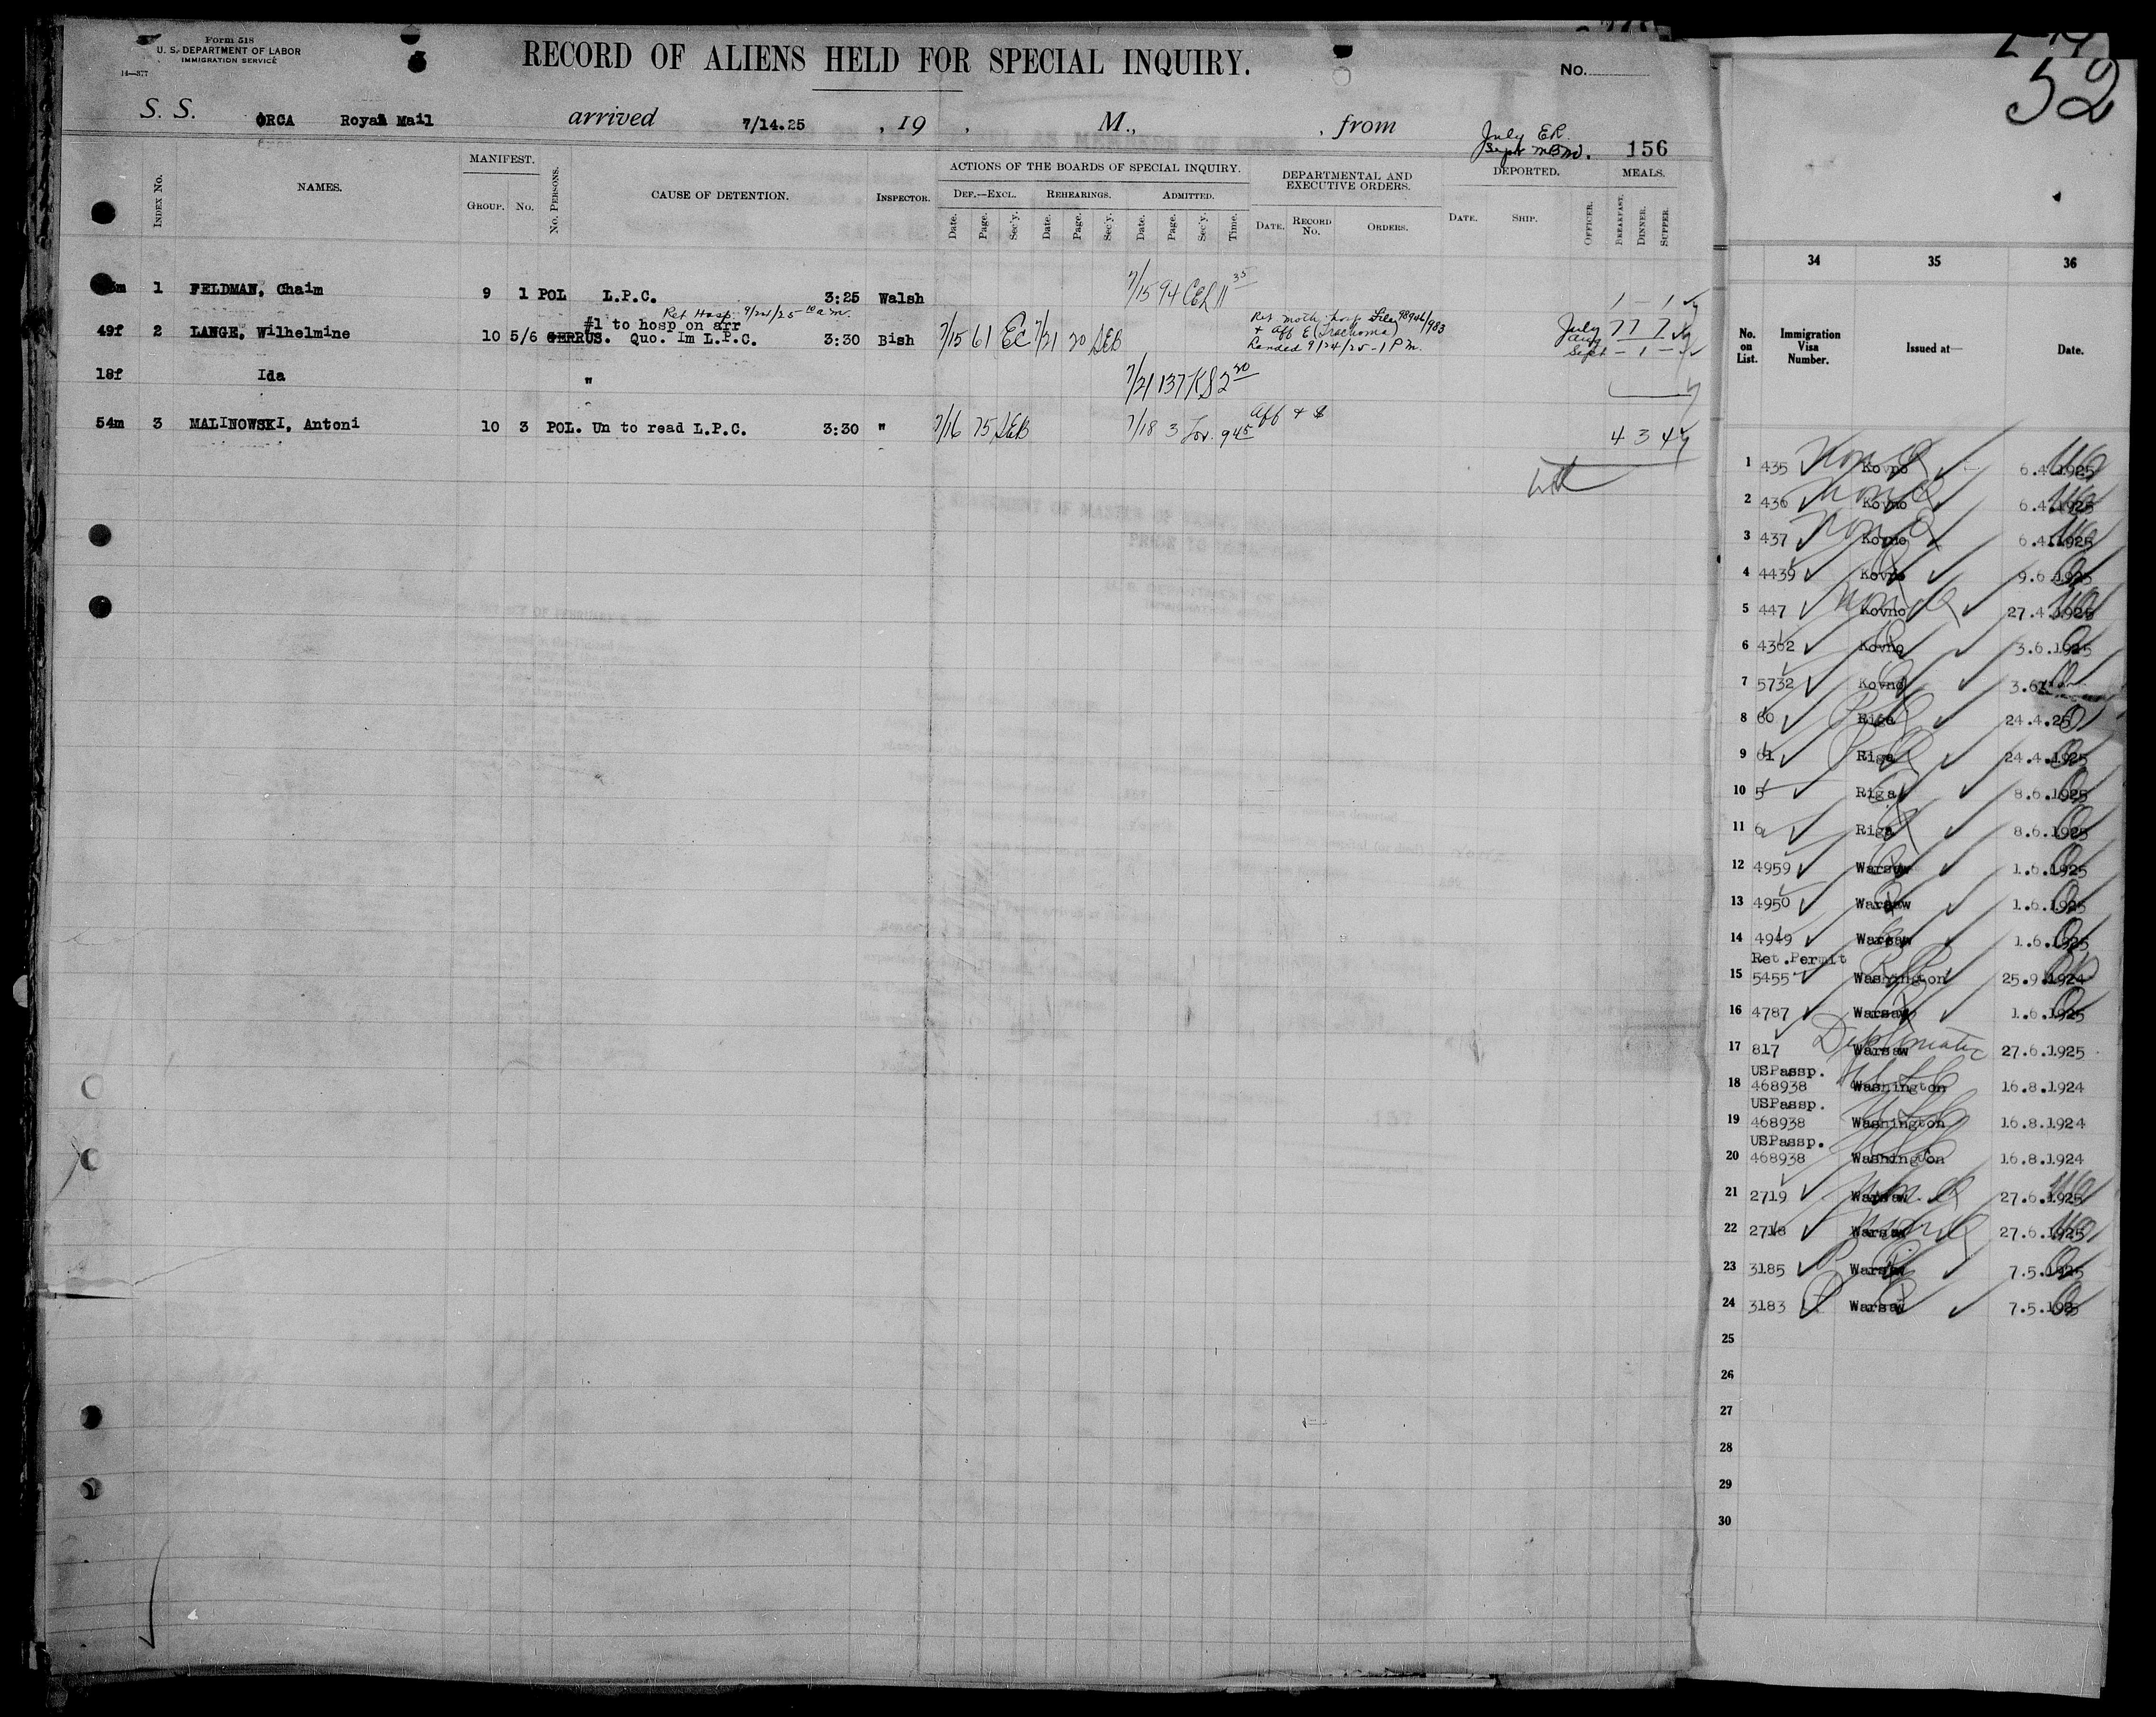 Form 518
U. S. DEPARTMENT OF LABOR
IMMIGRATION SERVICE
14—377
RECORD OF ALIENS HELD FOR SPECIAL INQUIRY.
No.
52
S. S. ORCA Royal Mail arrived 7/14.25 , 19 , M., , from
July ER.
Sept
156
INDEX No. NAMES. MANIFEST. GROUP. No. No. PERSONS. CAUSE OF DETENTION. INSPECTOR.
ACTIONS OF THE BOARDS OF SPECIAL INQUIRY.
DEF.—EXCL. REHEARINGS. ADMITTED.
Date. Page. Sec'y. Date. Page. Sec'y. Date. Page. Sec'y. Time.
DEPARTMENTAL AND EXECUTIVE ORDERS.
DATE. RECORD No. ORDERS.
DEPORTED.
DATE. SHIP. OFFICER.
MEALS.
BREAKFAST. DINNER. SUPPER.
1 FELDMAN, Chaim 9 1 POL L.P.C. 3:25 Walsh 7/15 94 CEL 11 35 1 — 1
Ret Hosp 9/24/25 - 10 a m.
#1 to hosp on arr
49f 2 LANGE, Wilhelmine 10 5/6 GERRUS. Quo. Im L.P.C. 3:30 Bish 7/15 61 EC 7/21 20 SEB
98946/983
+ aff E (Trachoma)
Landed 9/24/25 - 1 P m.
July 7 7 7
Aug
Sept — 1 —
18f Ida " 7/21 137 KS 2 20
54m 3 MALINOWSKI, Antoni 10 3 POL. Un to read L.P.C. 3:30 " 7/16 75 SEB 7/18 3 9 45 aff + $ 4 3 4
34 35 36
No. on List. Immigration Visa Number. Issued at— Date.
1 435 Kovno 6.4.1925
2 436 Kovno 6.4.1925
3 437 Kovno 6.4.1925
4 4439 Kovno 9.6.1925
5 447 Kovno 27.4.1925
6 4362 Kovno 3.6.1925
7 5732 Kovno 3.6
8 60 Riga 24.4.25
9 61 Riga 24.4.1925
10 5 Riga 8.6.1925
11 6 Riga 8.6.1925
12 4959 Warsaw 1.6.1925
13 4950 Warsaw 1.6.1925
14 4949 Warsaw 1.6.1925
Ret.Permit
15 5455 Washington 25.9.1924
16 4787 Warsaw 1.6.1925
17 817 Warsaw Diplomatic 27.6.1925
USPassp.
18 468938 Washington 16.8.1924
USPassp.
19 468938 Washington 16.8.1924
USPassp.
20 468938 Washington 16.8.1924
21 2719 Warsaw 27.6.1925
22 2718 Warsaw 27.6.1925
23 3185 Warsaw 7.5.1925
24 3183 Warsaw 7.5.1925
25
26
27
28
29
30